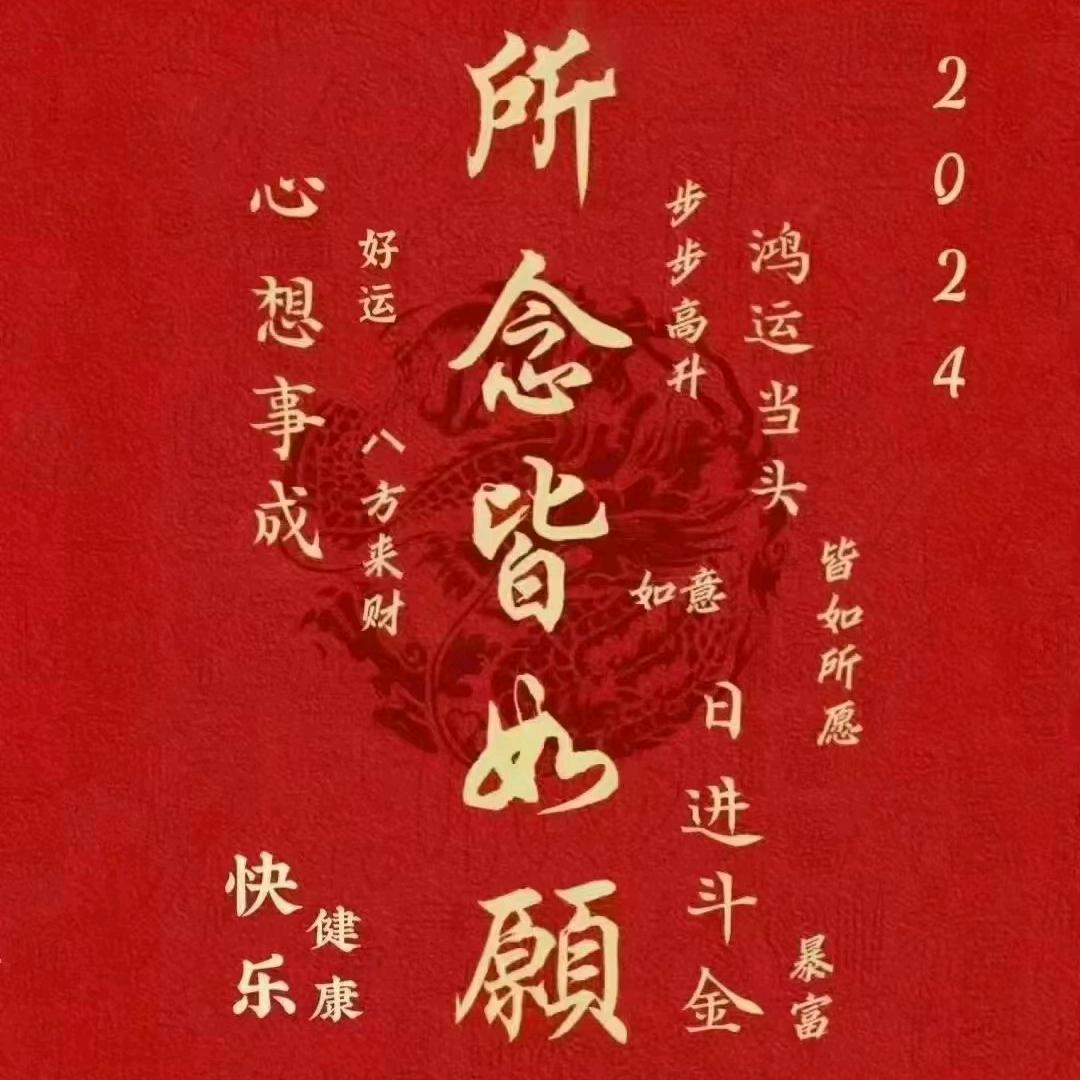 2024
皆如所愿
鸿运当头
步步高升
如意
日进斗金
暴富
所念皆如願
好运
八方来财
心想事成
健康
快乐